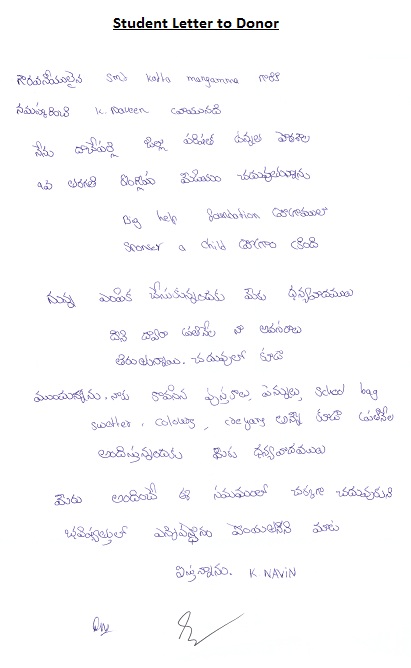 Student Letter to Donor
గౌరవనీయులైన Smt katta mangamma గారికి
నమస్కరించి K. Naveen వ్రాయునది
నేను దాచేపల్లి జిల్లా పరిషత్ ఉన్నత పాఠశాల
తరగతి ఇంగ్లీషు మీడియం చదువుతున్నాను
Big help foundation ప్రోగ్రాములో
Sponcer a child ప్రోగ్రాం క్రింద
నన్ను ఎంపిక చేసుకున్నందుకు మీకు ధన్యవాదములు
దీని ద్వారా ప్రతినెల నా అవసరాలు
తీరుతున్నాయి. చదువులో కూడా
ముందున్నాను. నాకు కావలసిన పుస్తకాలు, పెన్నులు, school bag
swetter, colours, అన్నీ కూడా ప్రతినెల
అందిస్తున్నందుకు మీకు ధన్యవాదములు
మీరు అందించే ఈ సహాయంతో చక్కగా చదువుకుని
భవిష్యత్తులో మీకు
K NAVIN